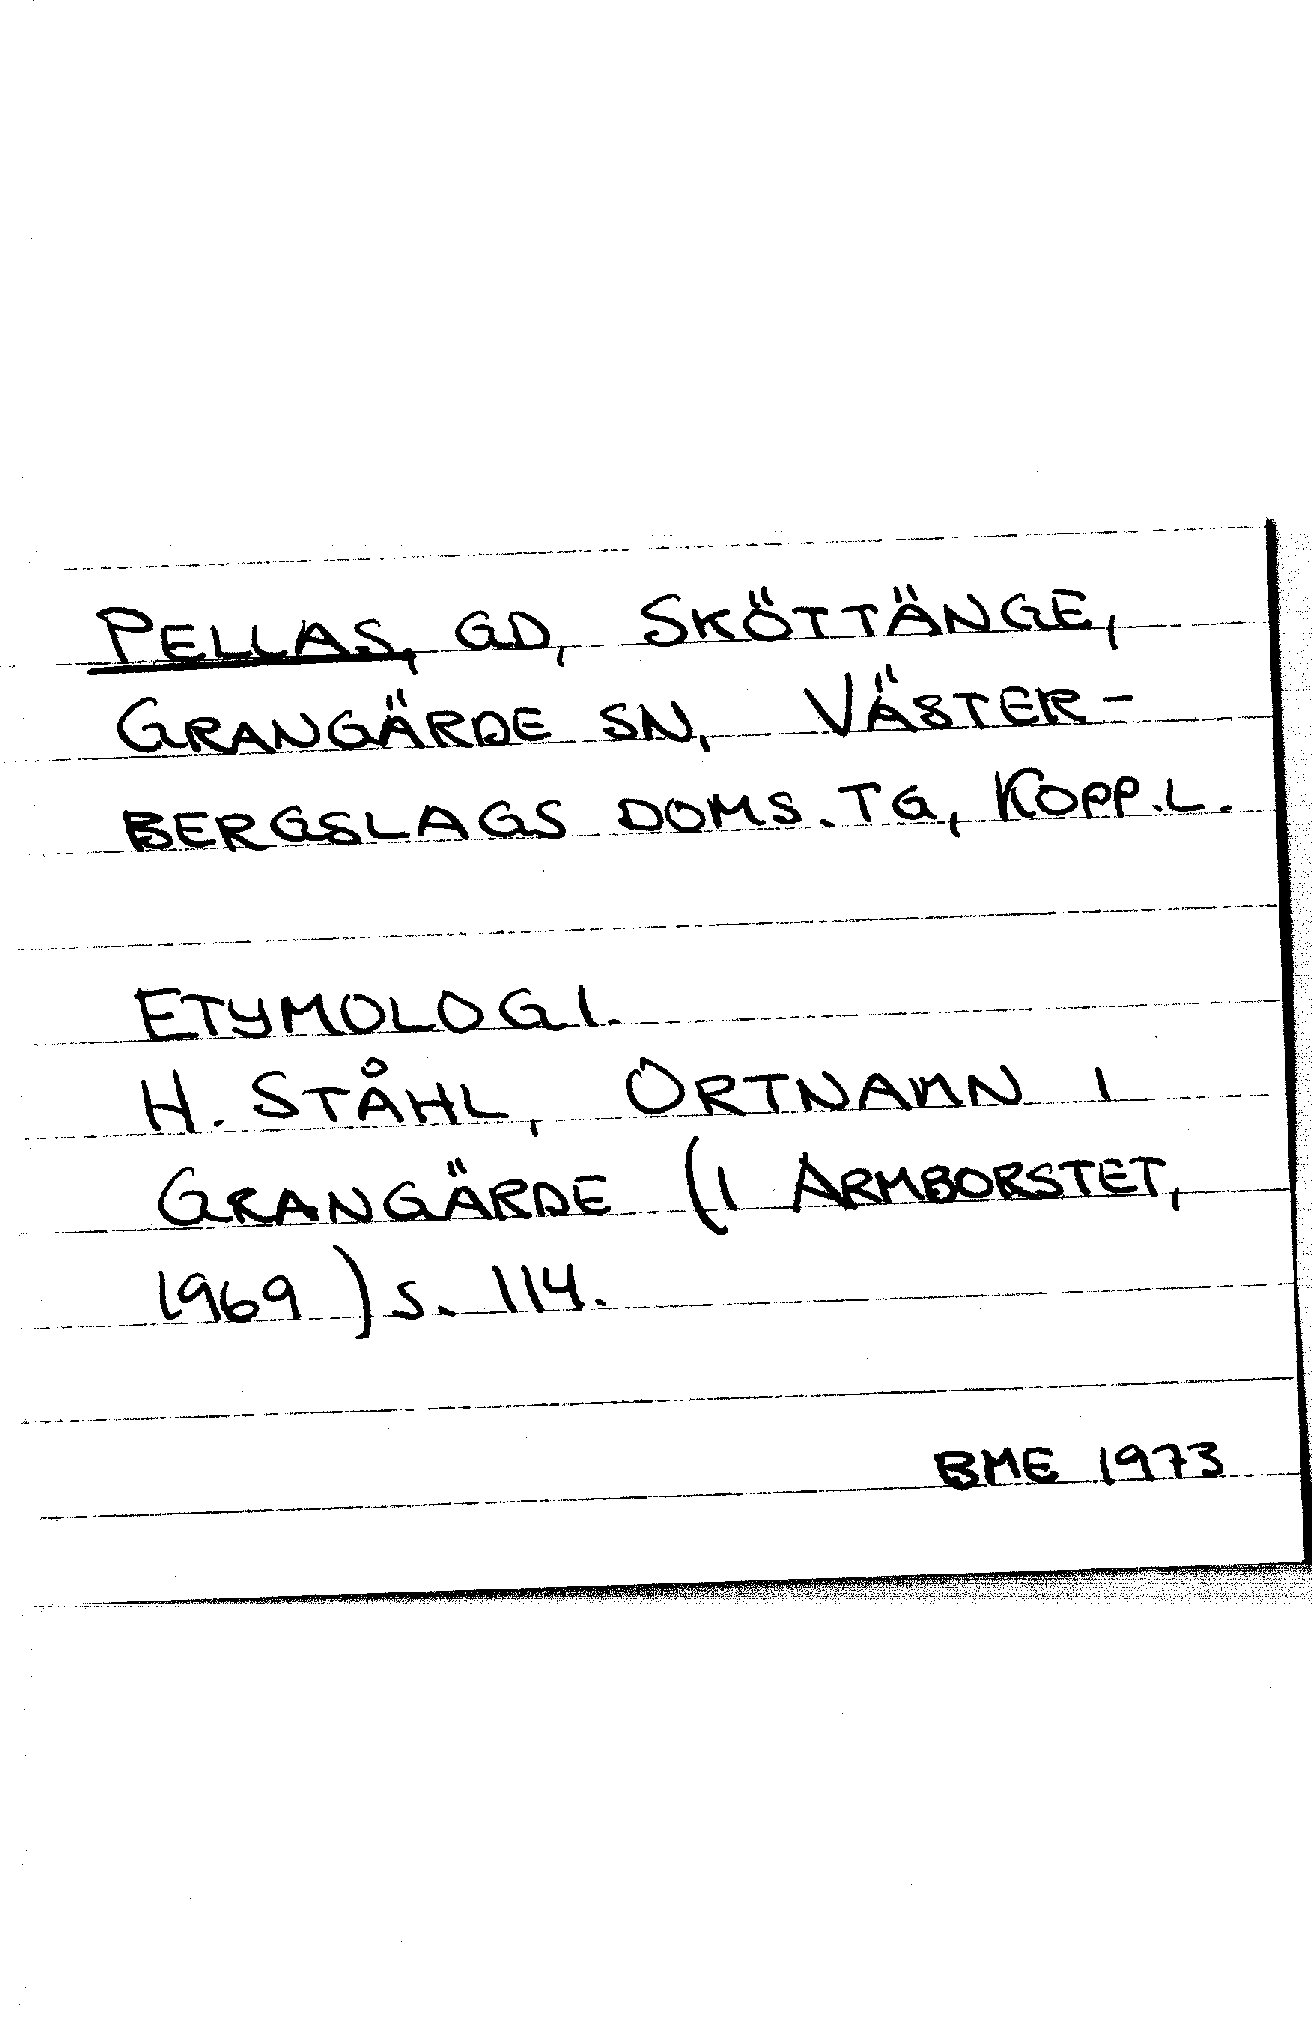 PELLAS, GD, SKÖTTÄNGE,
GRANGÄRDE SN, VÄSTER-
BERGSLAGS DOMS.TG, KOPP.L.
ETYMOLOGI.
H. STÅHL, ORTNAMN I
GRANGÄRDE (I ARMBORSTET,
1969) S. 114.
BME 1973